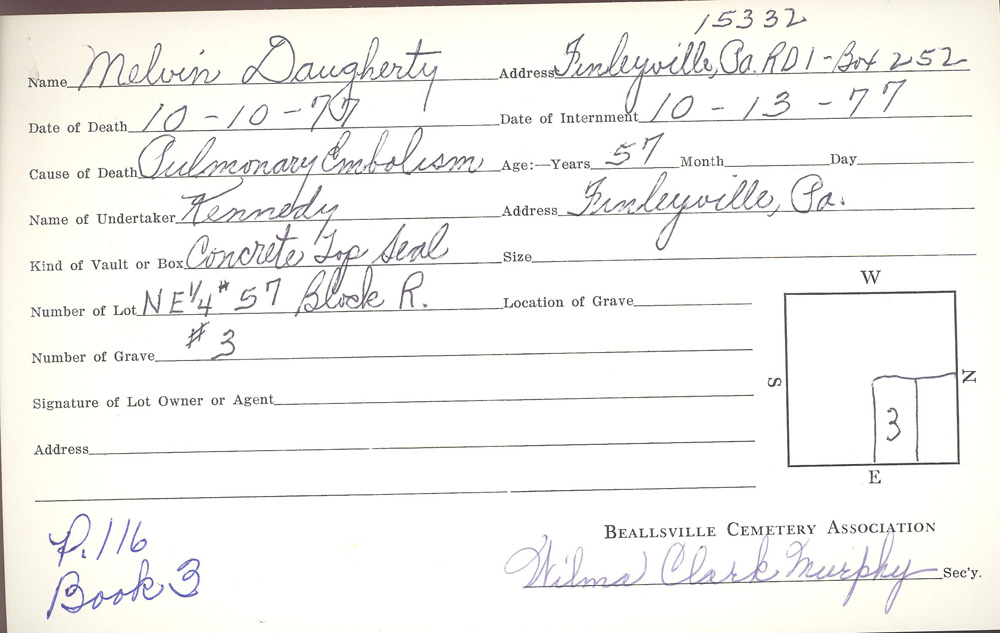 15332
Name Melvin Daugherty Address Finleyville, Pa. RD1 - Box 252
Date of Death 10-10-77 Date of Internment 10-13-77
Cause of Death Pulmonary Embolism Age:—Years 57 Month Day
Name of Undertaker Kennedy Address Finleyville, Pa.
Kind of Vault or Box Concrete Top Seal Size
Number of Lot NE 1/4 # 57 Block R. Location of Grave
Number of Grave # 3
Signature of Lot Owner or Agent
Address
W
S N
3
E
BEALLSVILLE CEMETERY ASSOCIATION
Wilma Clark Murphy Sec'y.
P. 116
Book 3